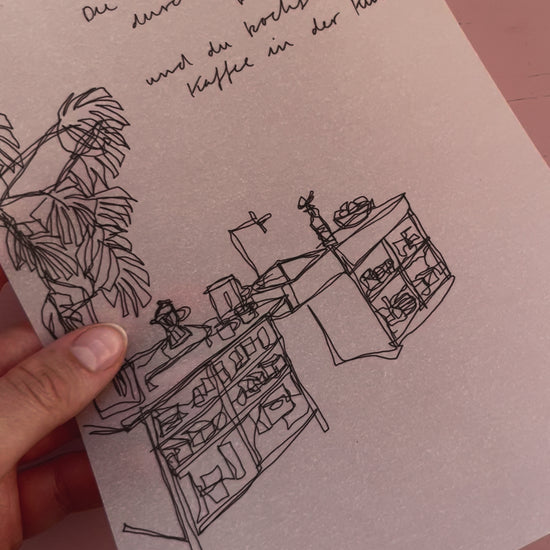 Du
durc
und du kochs
Kaffee in der Kü